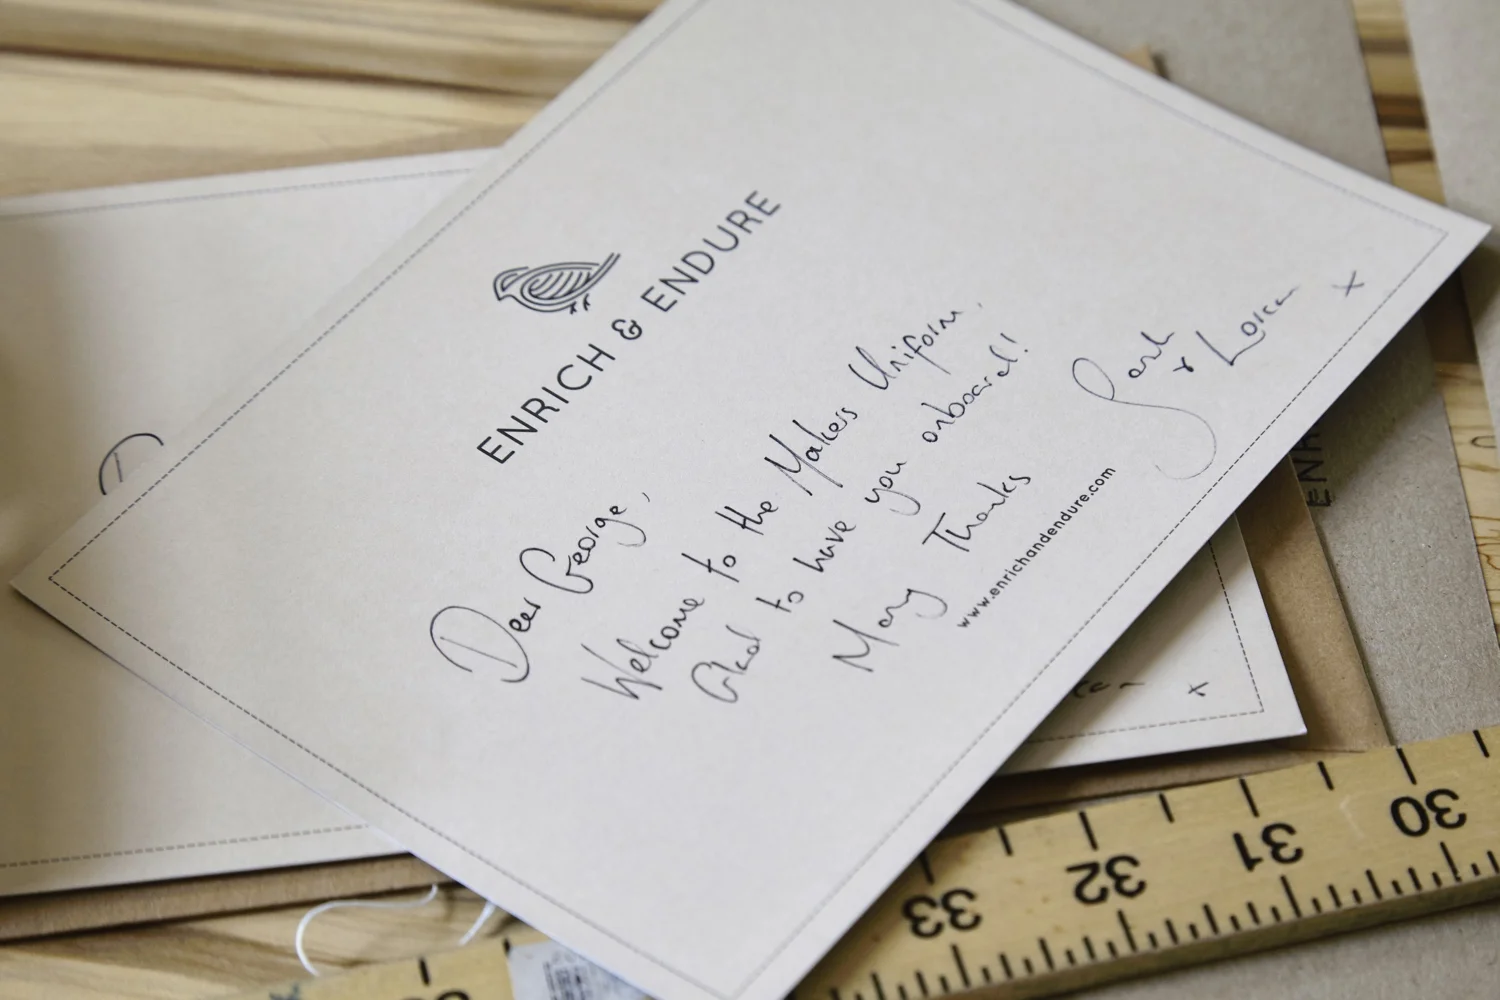 ENRICH & ENDURE
Dear George,
Welcome to the Makers Uniform.
Glad to have you onboard!
Many Thanks
Sarah
& Lorcan
x
www.enrichandendure.com
D
x
ENR
33
32
31
30